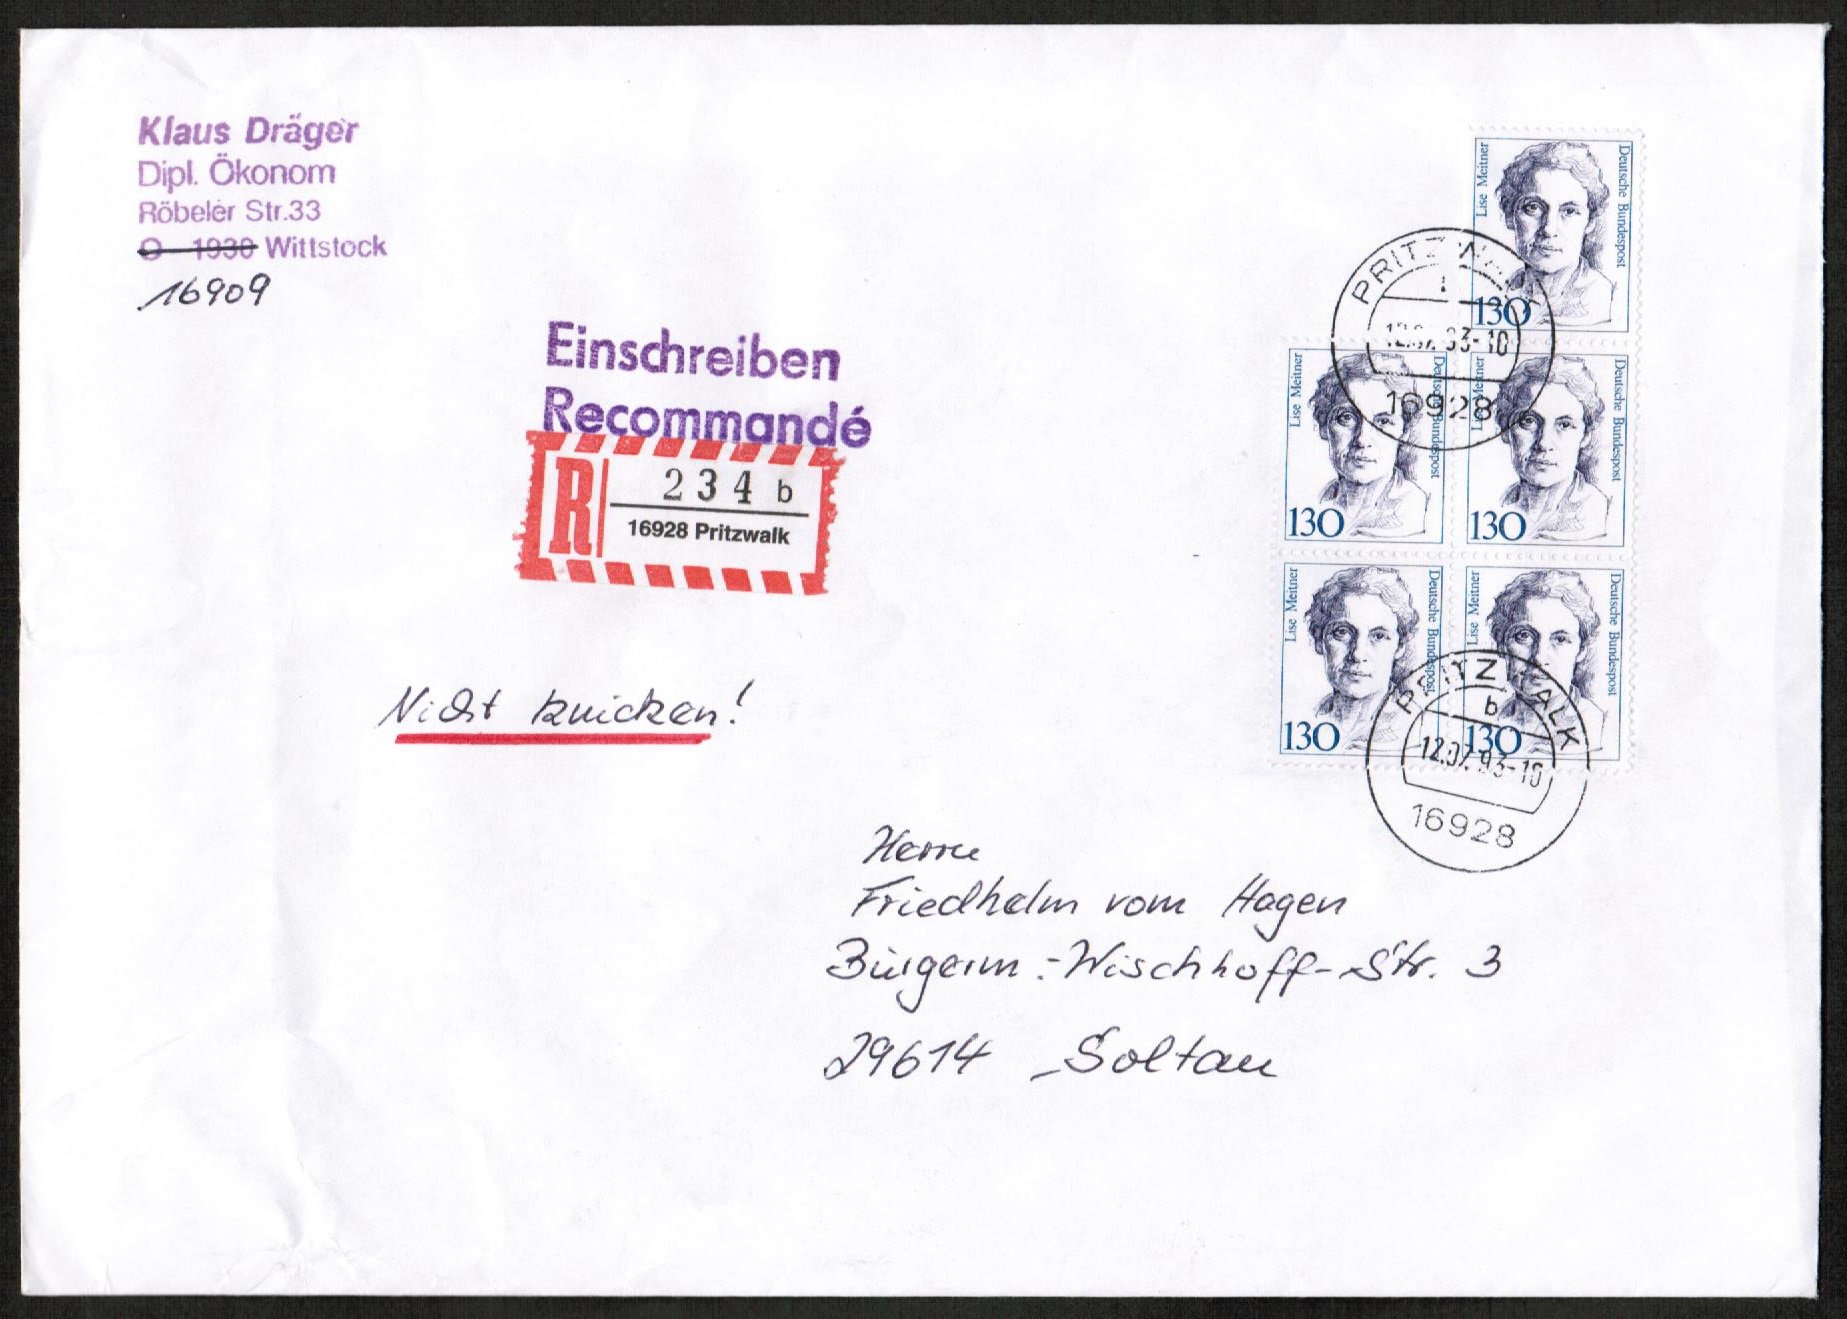 Klaus Dräger
Dipl. Ökonom
Röbeler Str.33
O - 1930 Wittstock
16909
Einschreiben
Recommandé
R
234 b
16928 Pritzwalk
Nicht knicken!
Lise Meitner
Deutsche Bundespost
130
Lise Meitner
Deutsche Bundespost
130
Lise Meitner
Deutsche Bundespost
130
Lise Meitner
Deutsche Bundespost
130
Lise Meitner
Deutsche Bundespost
130
16928
PRITZWALK
b
12.07.93-10
16928
Herrn
Friedhelm vom Hagen
Bürgerm.-Wischhoff-Str. 3
29614 Soltau